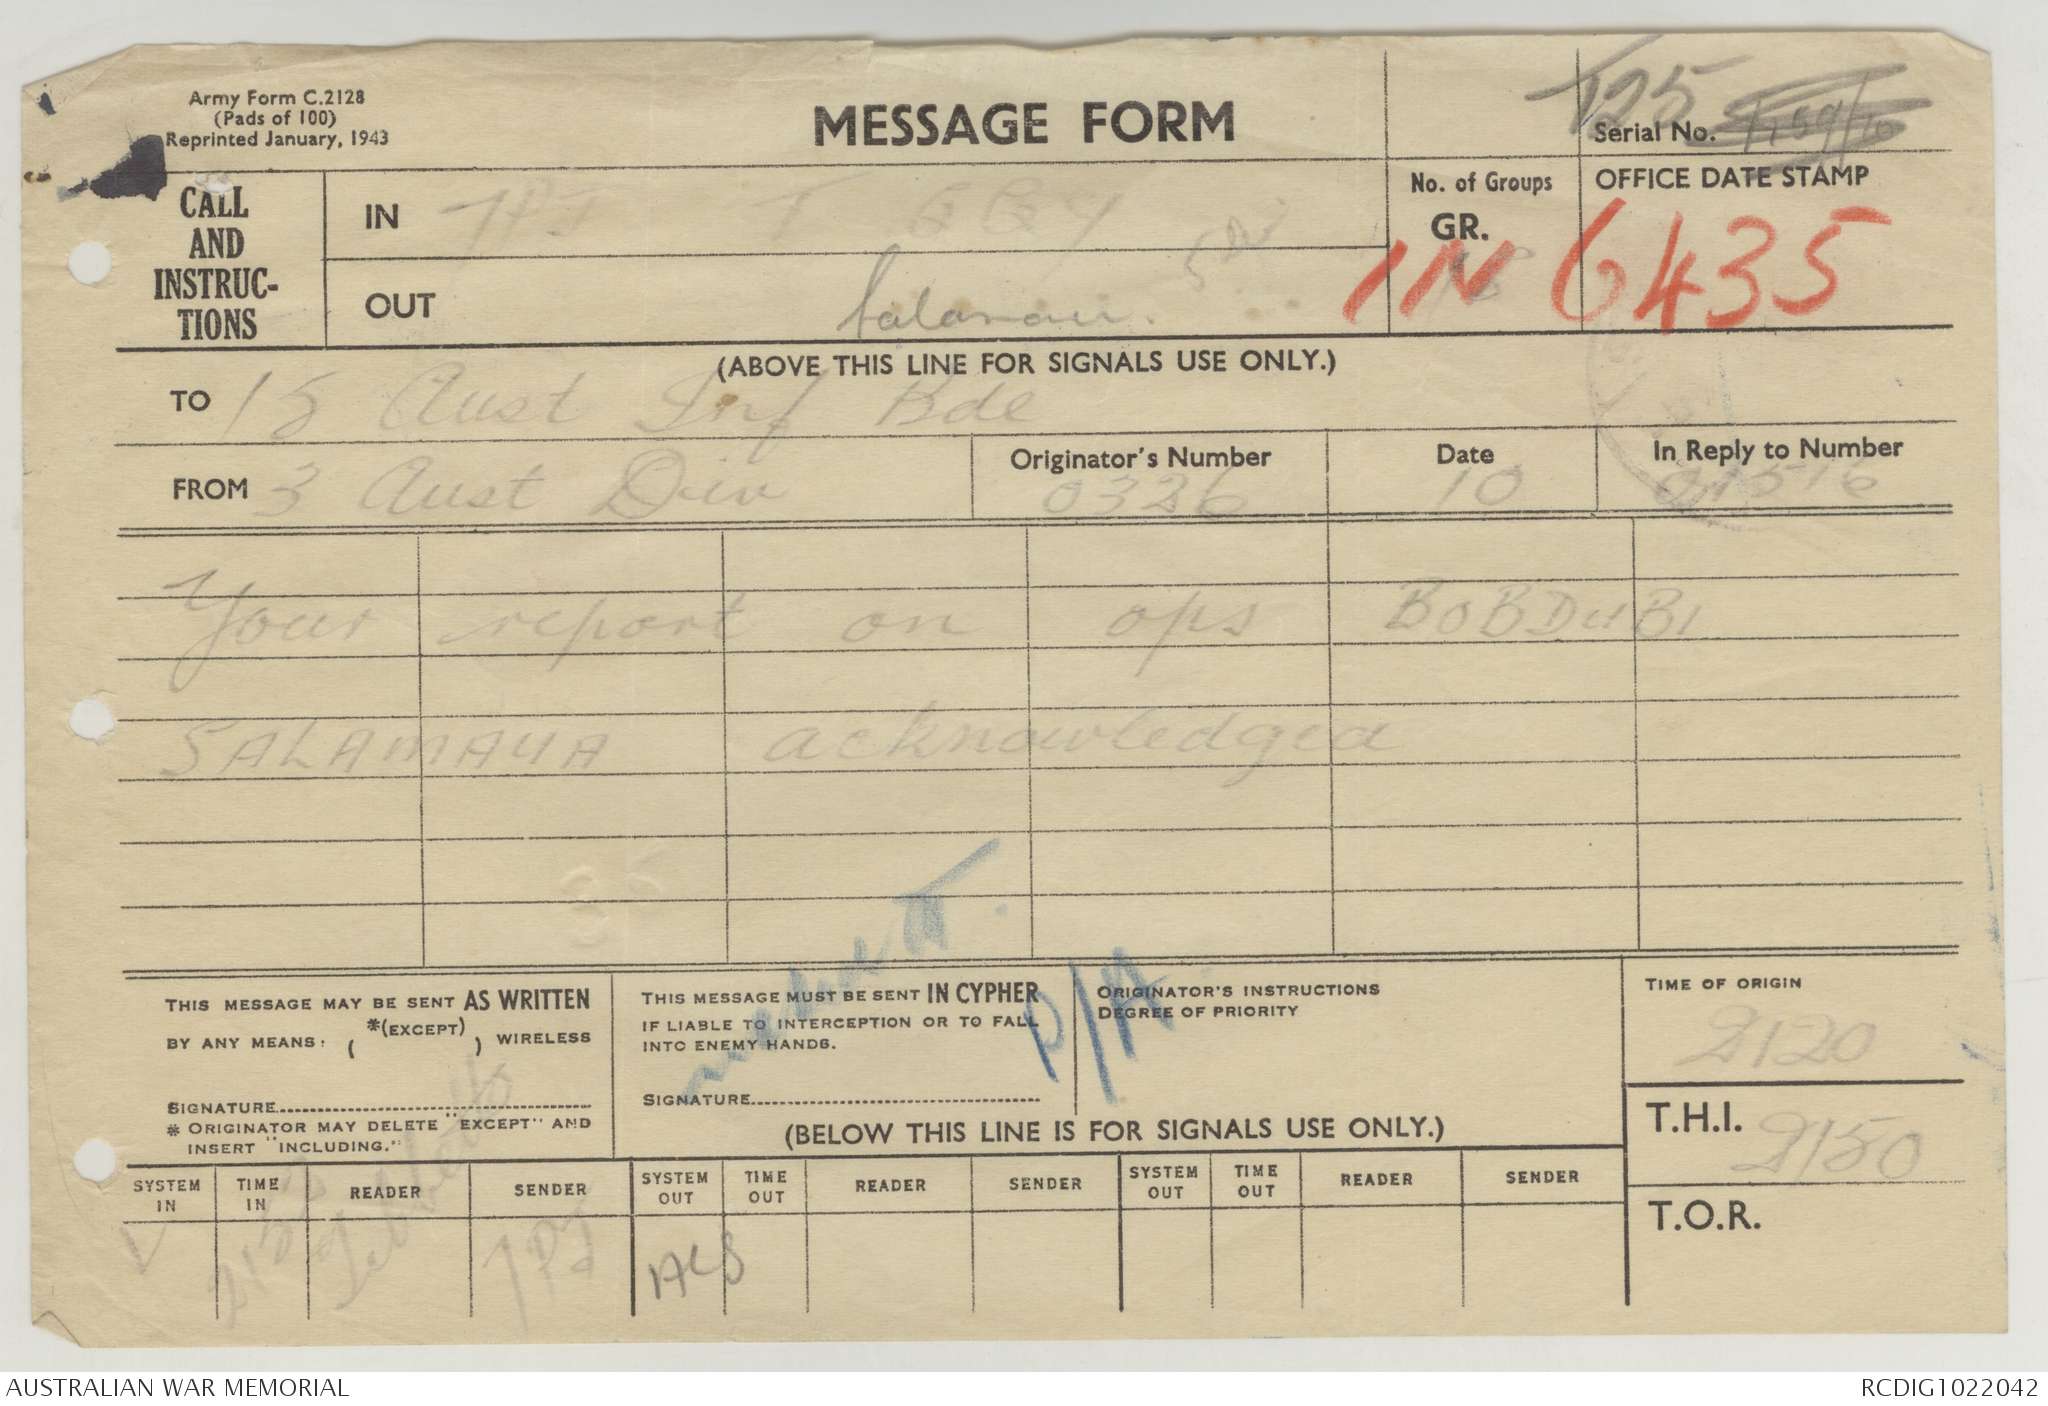 Army Form C.2128
(Pads of 100)
Reprinted January, 1943
MESSAGE FORM
T25
Serial No.
CALL AND INSTRUC-TIONS
IN 7PJ T
OUT
No. of Groups
GR.
OFFICE DATE STAMP
IN 6435
(ABOVE THIS LINE FOR SIGNALS USE ONLY.)
TO 15 Aust Inf Bde
FROM 3 Aust Div
Originator's Number
0326
Date
10
In Reply to Number
Your report on ops BOBDUBI
SALAMAUA acknowledged
THIS MESSAGE MAY BE SENT AS WRITTEN
BY ANY MEANS: ( *(EXCEPT) ) WIRELESS
SIGNATURE
* ORIGINATOR MAY DELETE "EXCEPT" AND
INSERT "INCLUDING."
THIS MESSAGE MUST BE SENT IN CYPHER
IF LIABLE TO INTERCEPTION OR TO FALL
INTO ENEMY HANDS.
SIGNATURE
P/A.
ORIGINATOR'S INSTRUCTIONS
DEGREE OF PRIORITY
TIME OF ORIGIN
2120
T.H.I. 2150
T.O.R.
(BELOW THIS LINE IS FOR SIGNALS USE ONLY.)
SYSTEM IN
TIME IN
READER
SENDER
SYSTEM OUT
TIME OUT
READER
SENDER
SYSTEM OUT
TIME OUT
READER
SENDER
V
7PJ
AUSTRALIAN WAR MEMORIAL
RCDIG1022042